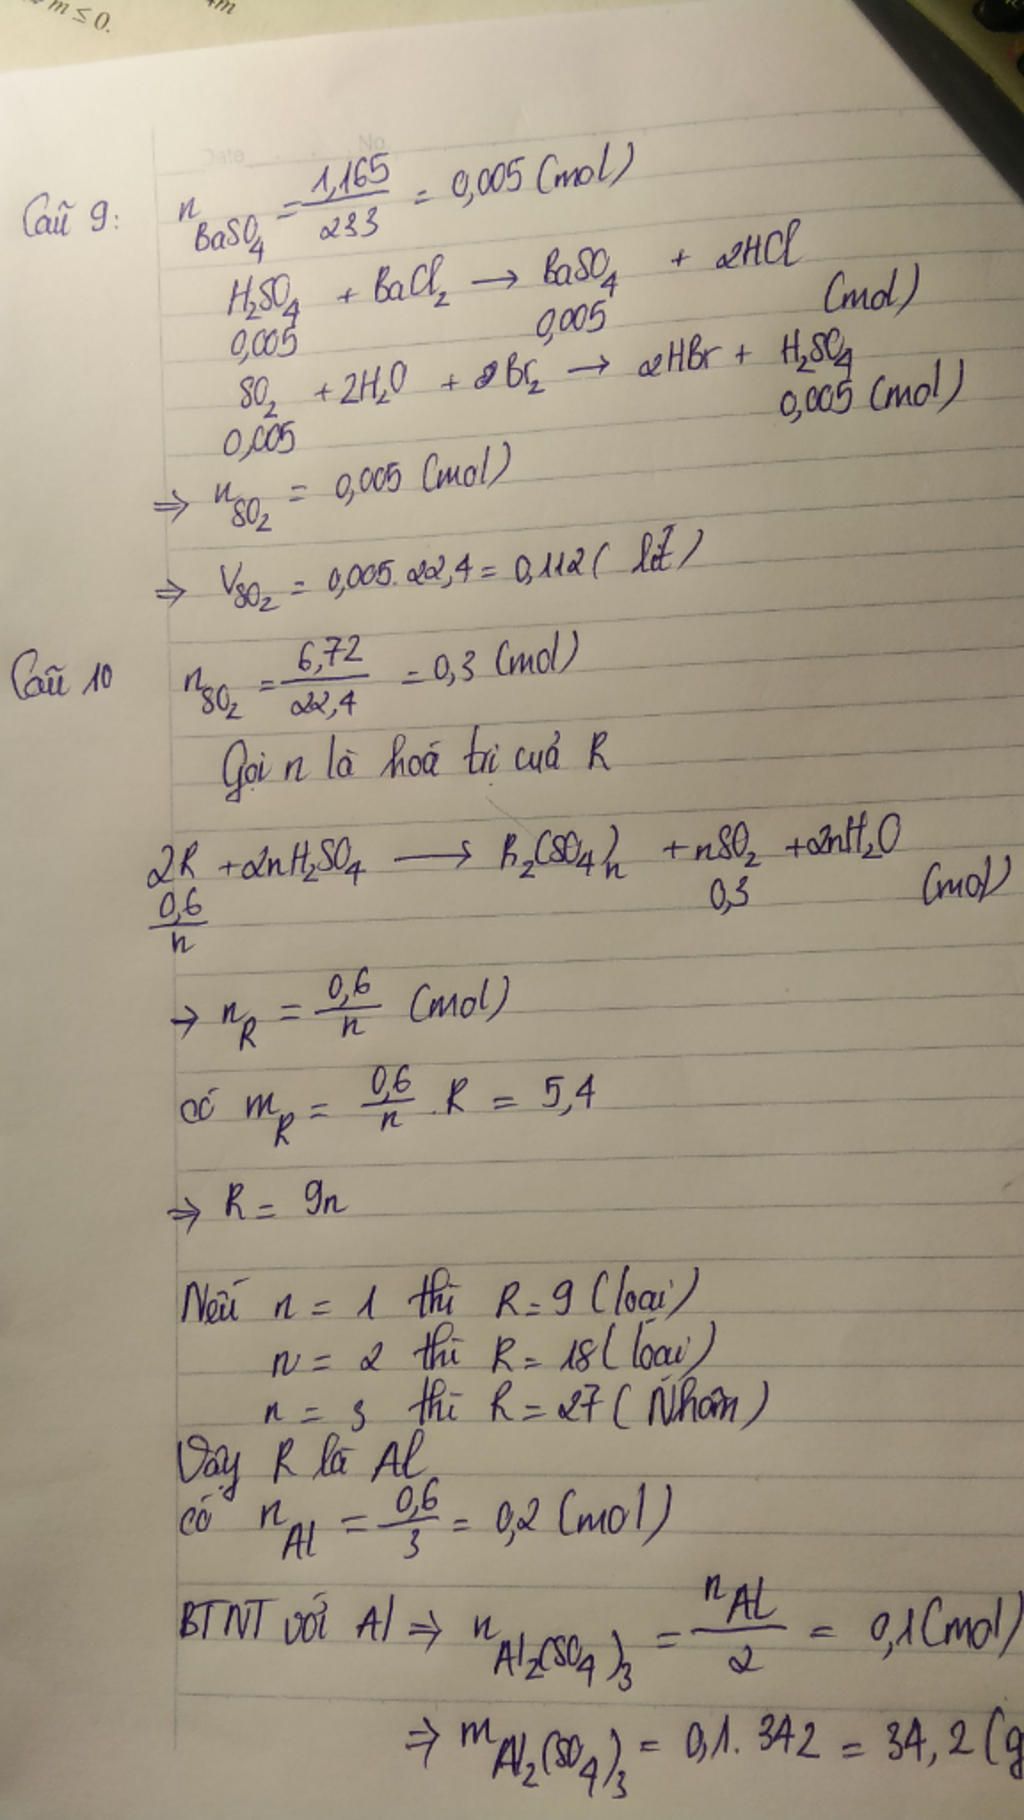 m ≤ 0.
4m
Date No
Câu 9: n BaSO₄ = 1,165/233 = 0,005 (mol)
H₂SO₄ + BaCl₂ → BaSO₄ + 2HCl
0,005 0,005 (mol)
SO₂ + 2H₂O + Br₂ → 2HBr + H₂SO₄
0,005 0,005 (mol)
⇒ n SO₂ = 0,005 (mol)
⇒ V SO₂ = 0,005.22,4 = 0,112 (lít)
Câu 10 n SO₂ = 6,72/22,4 = 0,3 (mol)
Gọi n là hoá trị cuả R
2R + 2nH₂SO₄ → R₂(SO₄)n + nSO₂ + 2nH₂O
0,6/n 0,3 (mol)
→ n R = 0,6/n (mol)
có m R = 0,6/n . R = 5,4
⇒ R = 9n
Nếu n = 1 thì R = 9 (loại)
n = 2 thì R = 18 (loại)
n = 3 thì R = 27 (Nhôm)
Vậy R là Al
có n Al = 0,6/3 = 0,2 (mol)
BTNT với Al ⇒ n Al₂(SO₄)₃ = n Al/2 = 0,1 (mol)
⇒ m Al₂(SO₄)₃ = 0,1.342 = 34,2 (g